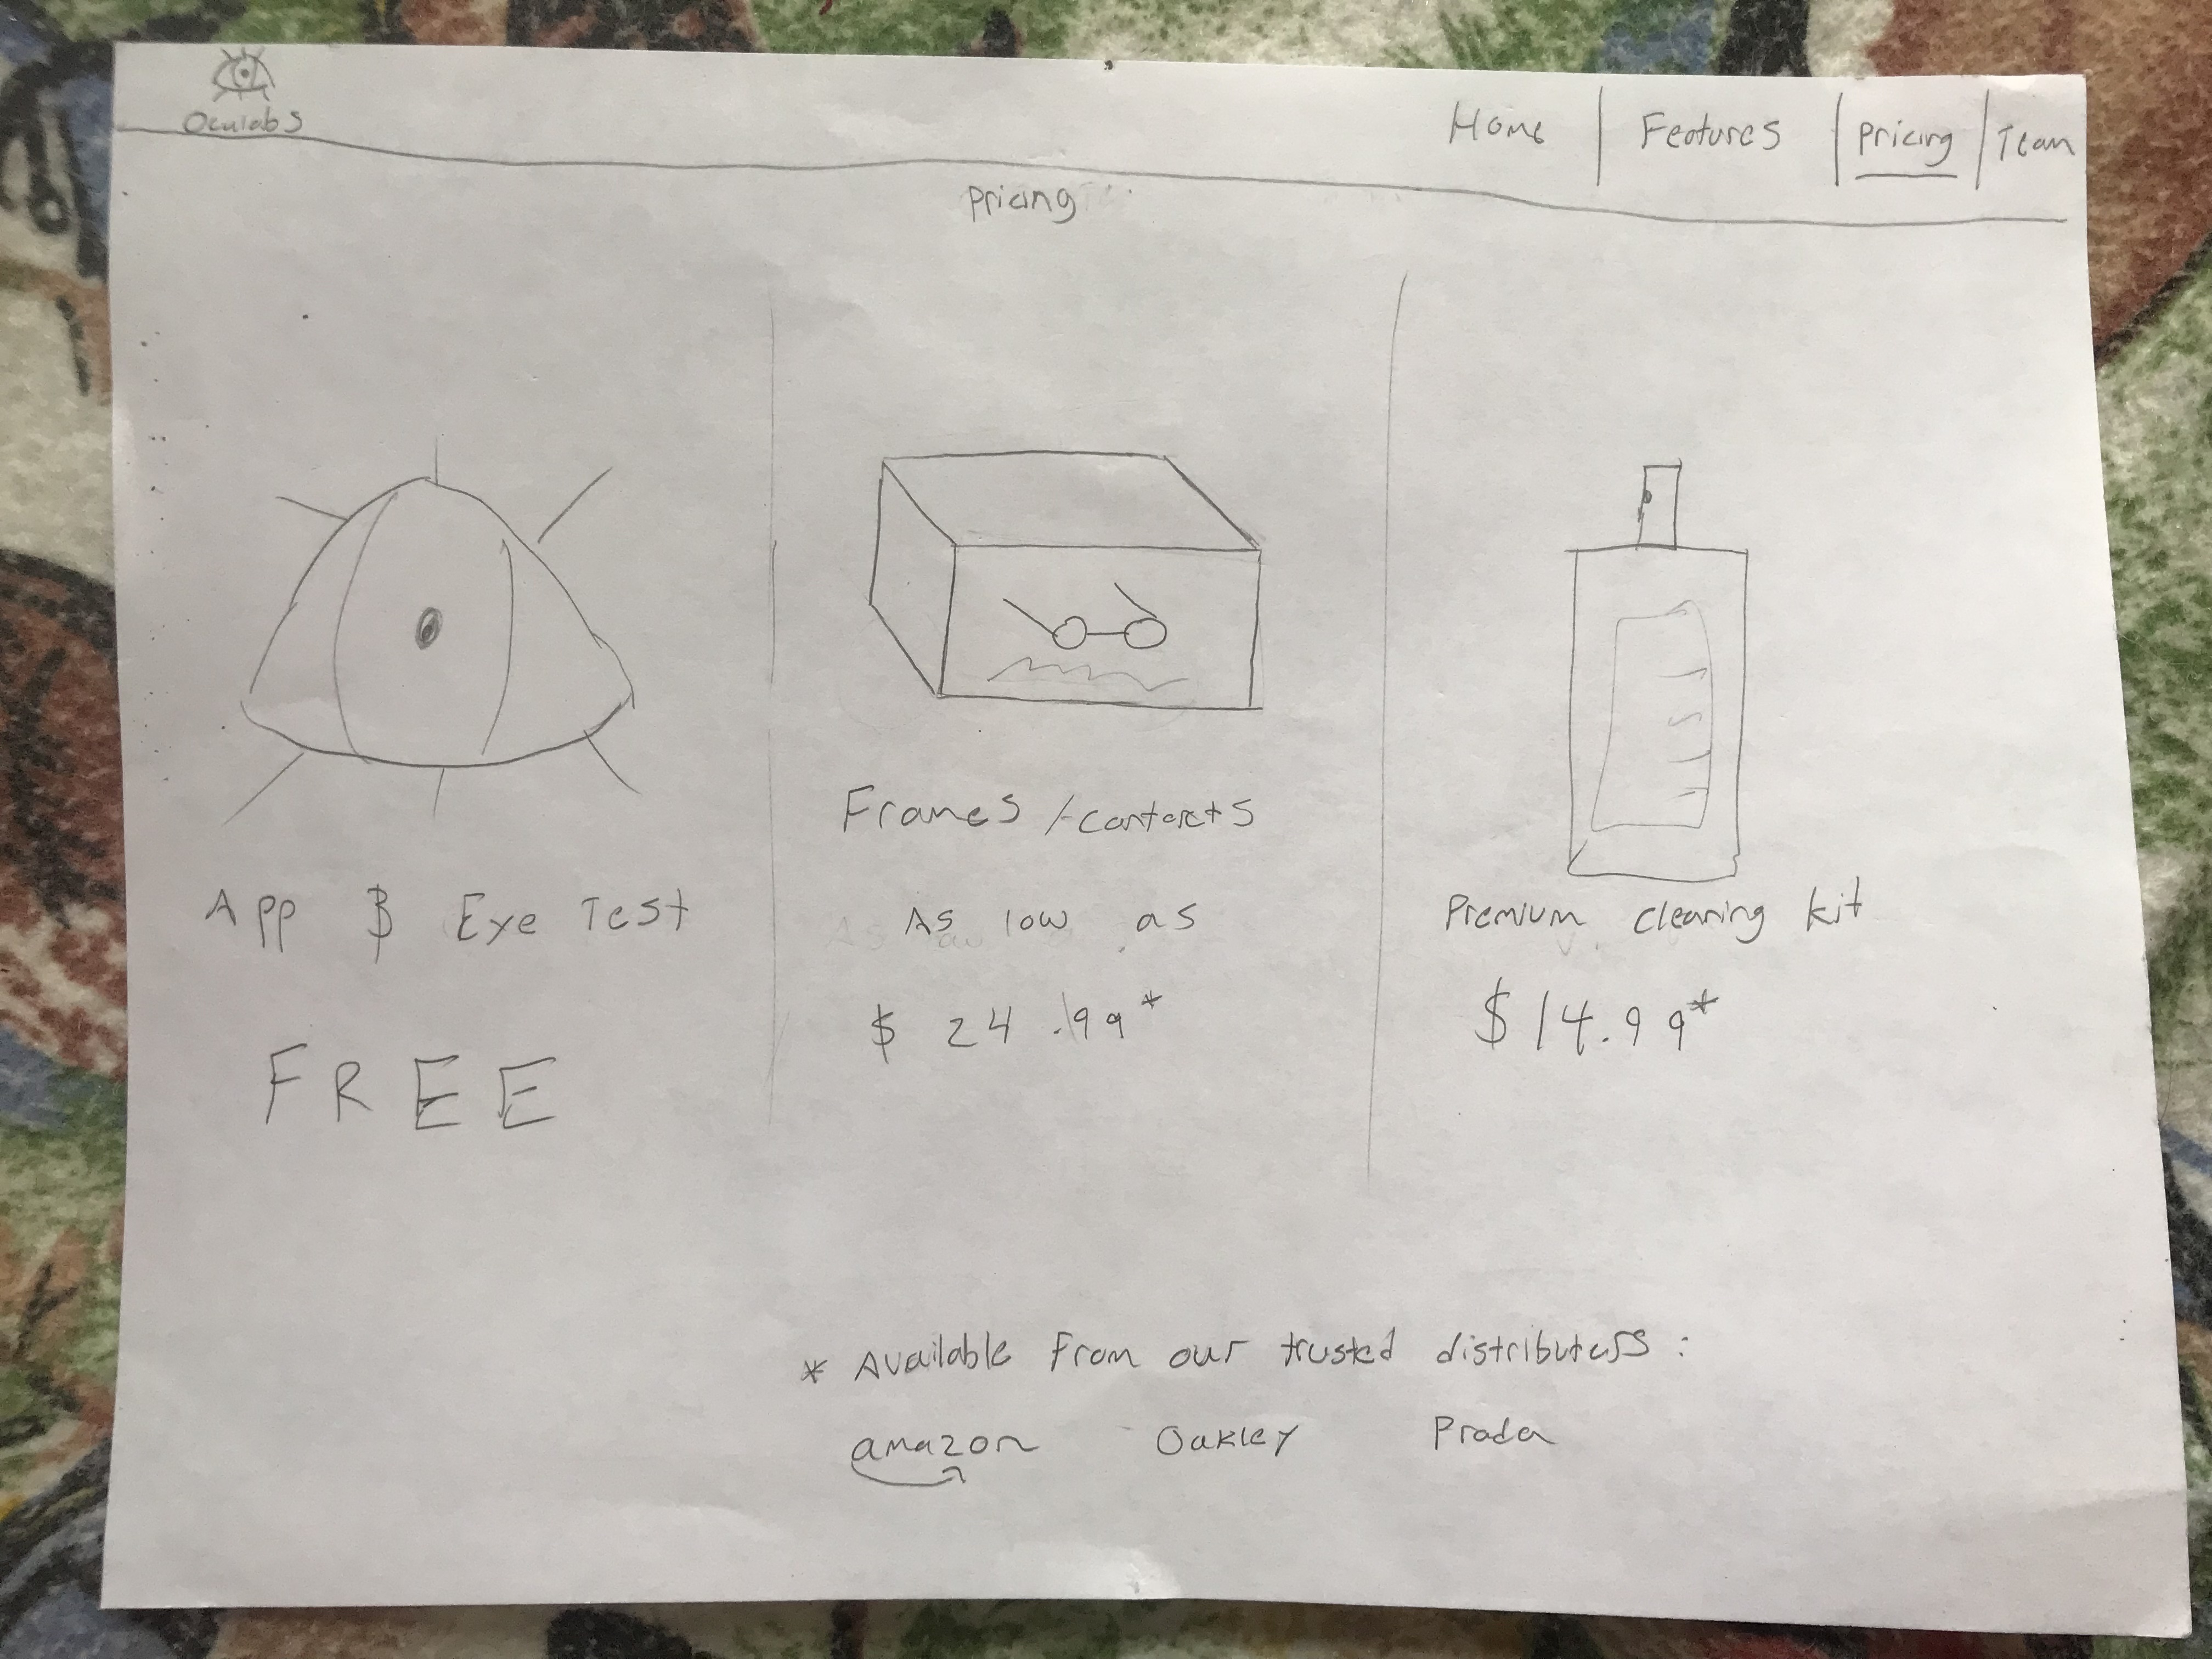 Oculabs
Home | Features | Pricing | Team
Pricing
App & Eye Test
FREE
Frames / contacts
As low as
$24.99*
Premium Cleaning kit
$14.99*
* Available from our trusted distributors:
amazon Oakley Prada